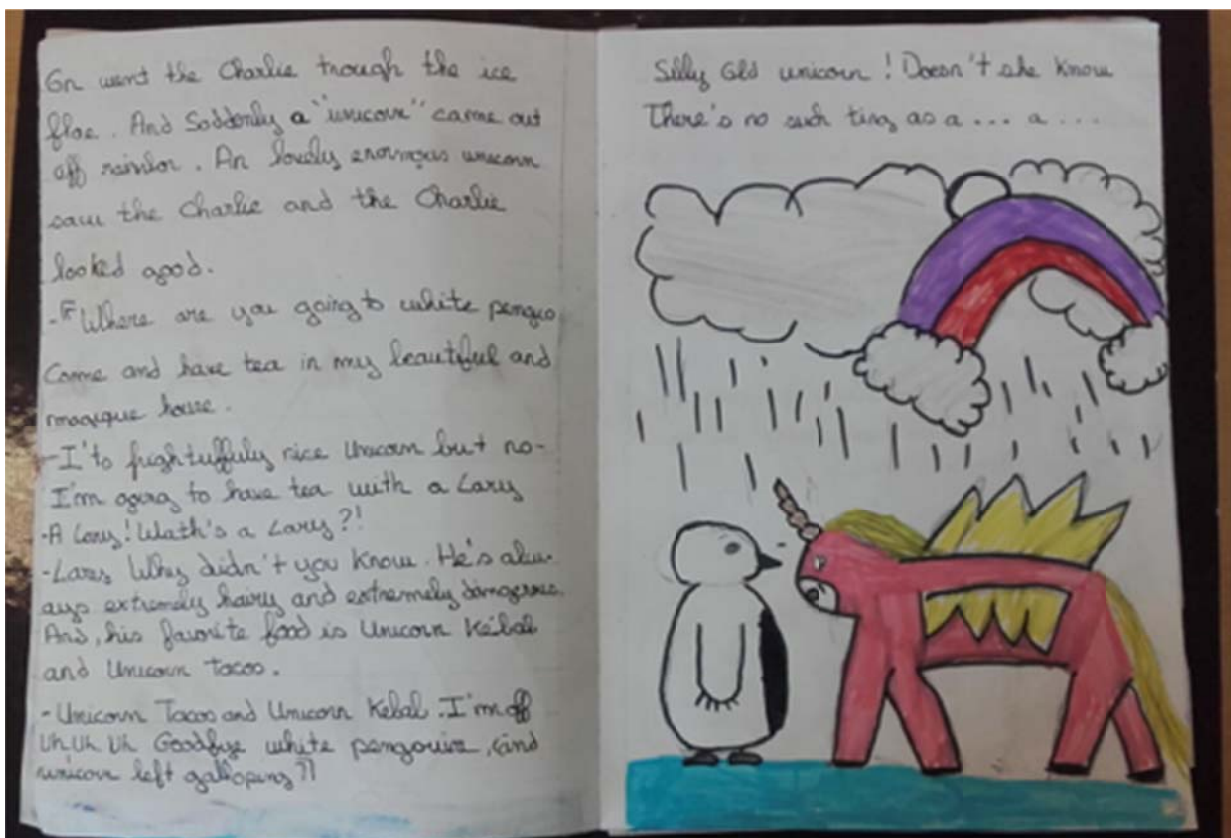 On went the Charlie trough the ice
floe. And Soddonly a "unicorn" came out
off rainbor. An lovely enormous unicorn
saw the Charlie and the Charlie
looked good.
- Where are you going to white penguo
Come and have tea in my beautiful and
magique house.
- I'to frightuffuly nice Unicorn but no-
I'm going to have tea with a Lary
- A Lary! Wath's a Lary?!
- Lary Why didn't you Know. He's alw-
ays extremely hairy and extremely dangerous.
And, his favorite food is Unicorn Kébab
and Unicorn Tacos.
- Unicorn Tacos and Unicorn Kebab. I'm off
Uh Uh Uh Goodbye white pengouin, (and
unicorn left galloping)!
Silly Old unicorn! Doesn't she Know
There's no such ting as a ... a ...